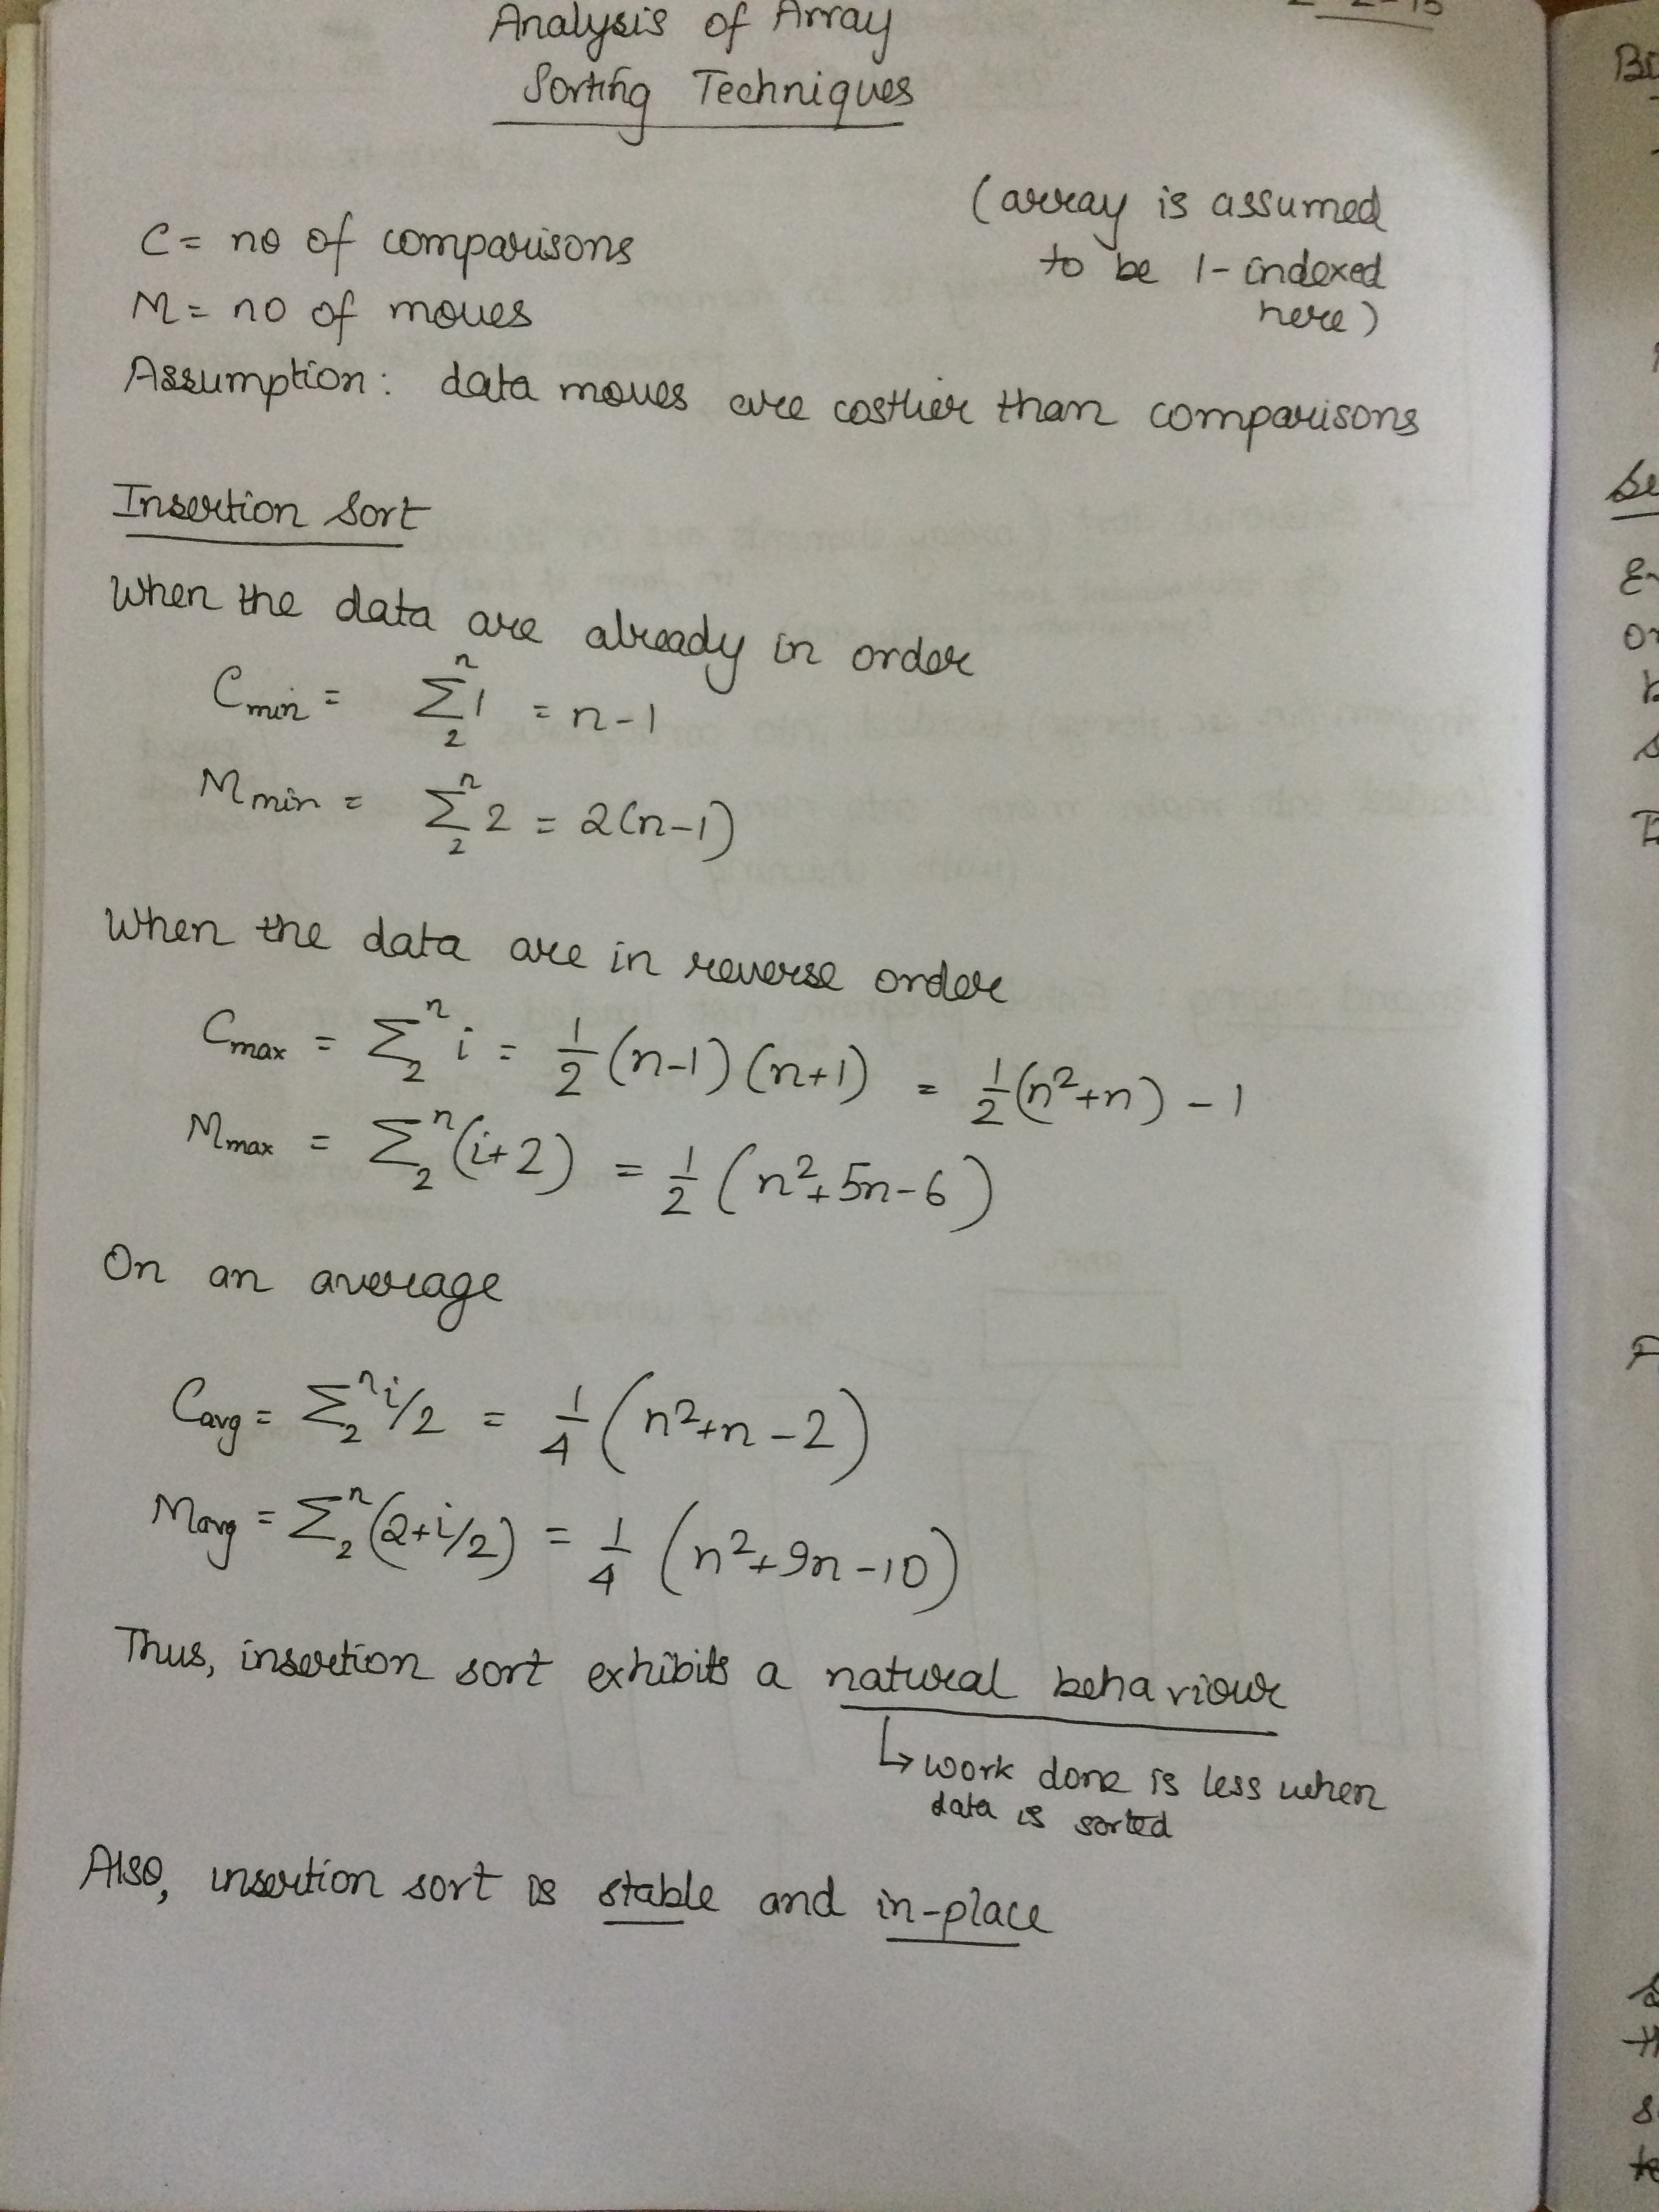 Analysis of Array
Sorting Techniques
(array is assumed
to be 1-indexed
here)
C = no of comparisons
M = no of moves
Assumption: data moves are costlier than comparisons
Insertion Sort
When the data are already in order
Cmin = Σ₂ⁿ 1 = n-1
Mmin = Σ₂ⁿ 2 = 2(n-1)
When the data are in reverse order
Cmax = Σ₂ⁿ i = 1/2 (n-1)(n+1) = 1/2 (n²+n) - 1
Mmax = Σ₂ⁿ (i+2) = 1/2 (n²+5n-6)
On an average
Cavg = Σ₂ⁿ i/2 = 1/4 (n²+n-2)
Mavg = Σ₂ⁿ (2+i/2) = 1/4 (n²+9n-10)
Thus, insertion sort exhibits a natural behaviour
↳ work done is less when
data is sorted
Also, insertion sort is stable and in-place